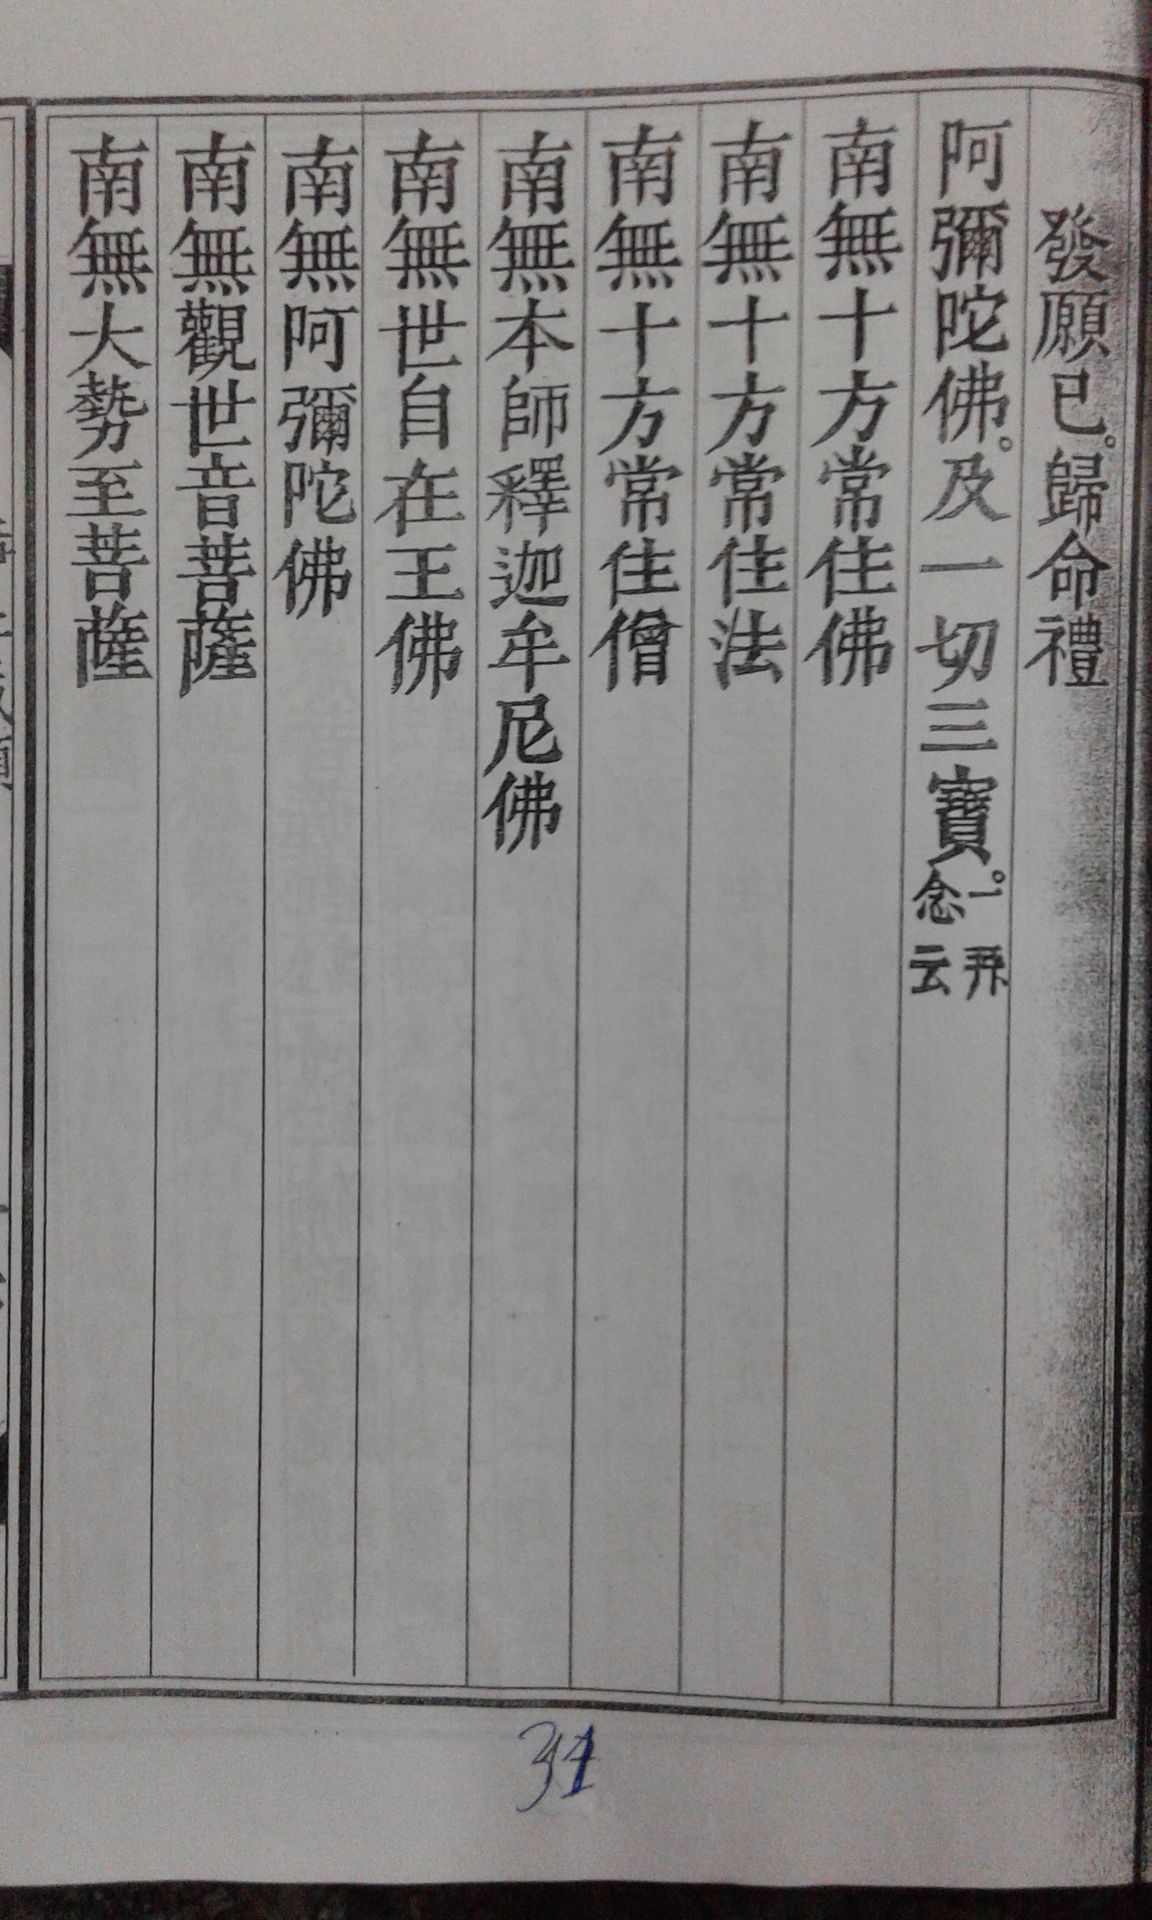 發願已。歸命禮
阿彌陀佛。及一切三寶。一拜念云
南無十方常住佛
南無十方常住法
南無十方常住僧
南無本師釋迦牟尼佛
南無世自在王佛
南無阿彌陀佛
南無觀世音菩薩
南無大勢至菩薩